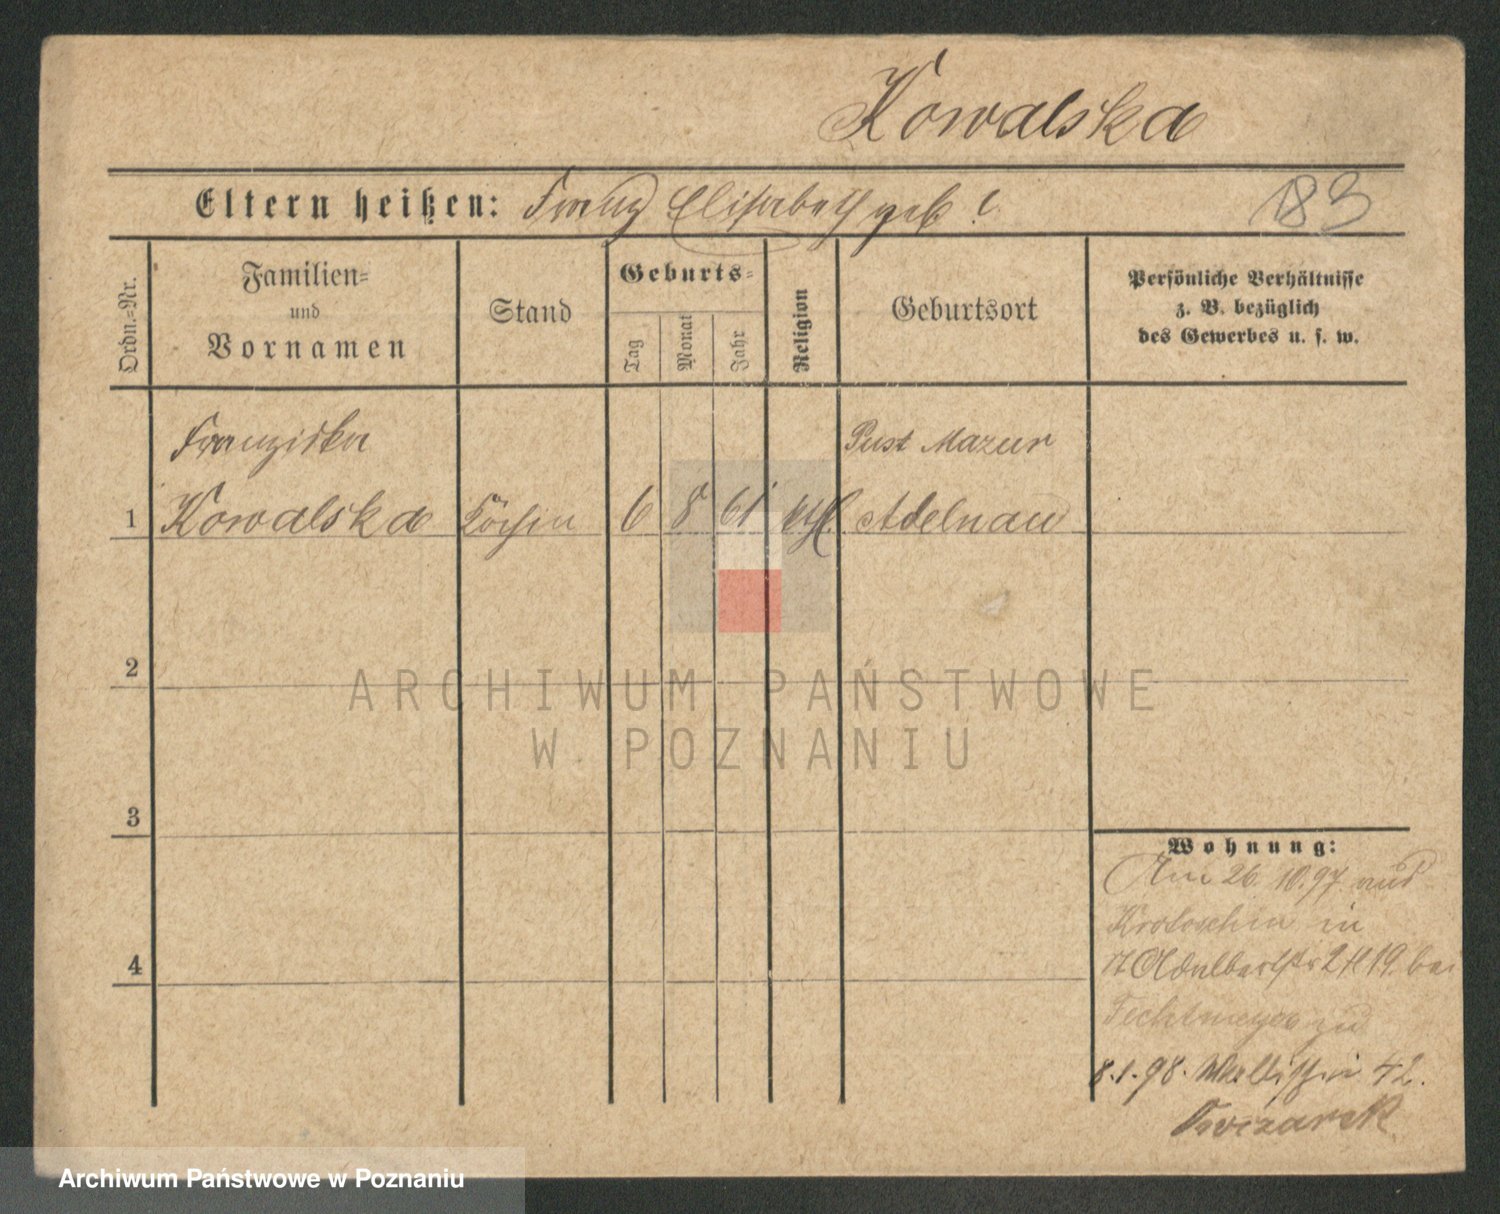 Kowalska
Eltern heißen: Franz Elisabeth geb ?
183
Ordn.=Nr.
Familien=
und
Vornamen
Stand
Geburts=
Tag
Monat
Jahr
Religion
Geburtsort
Persönliche Verhältnisse
z. B. bezüglich
des Gewerbes u. s. w.
Franziska
Pust Mazur
1 Kowalska Köchin 6 8 61 kth. Adelnau
2
ARCHIWUM PAŃSTWOWE
W POZNANIU
3
Wohnung:
Am 26 10.97 aus
Krotoschin in
4
Adalbertstr 2 19. bei
Fechtmeyer zu
8.1.98. Wallischei 42.
Archiwum Państwowe w Poznaniu